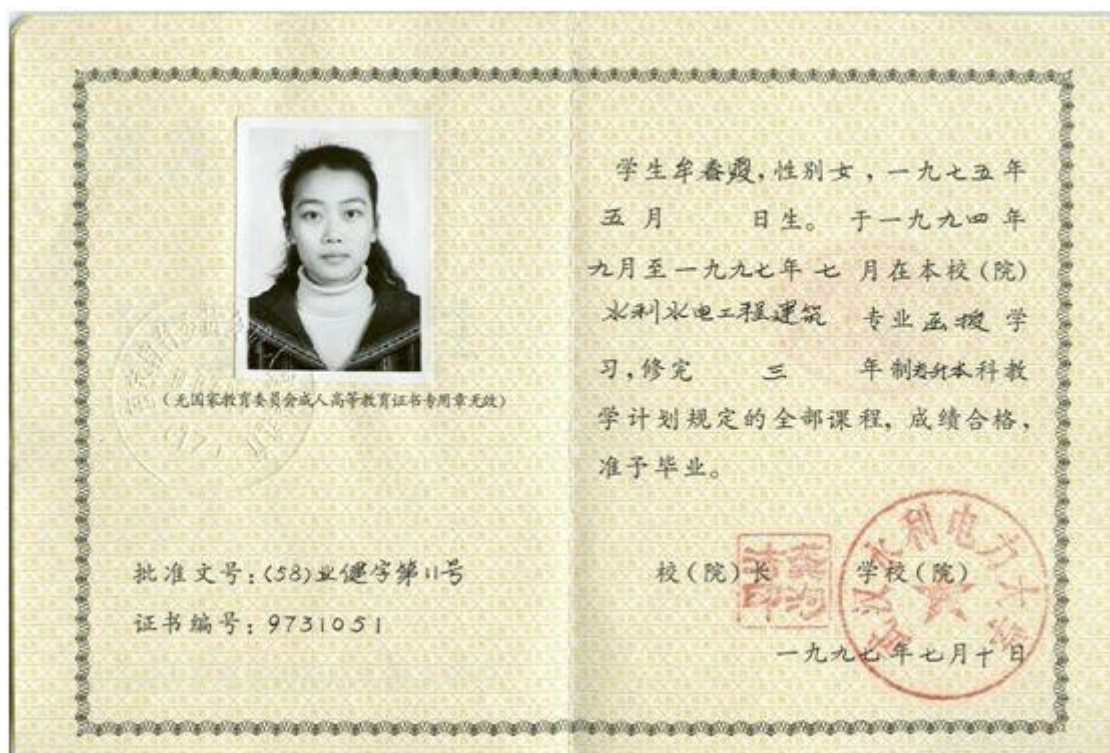 (无国家教育委员会成人高等教育证书专用章无效)
批准文号:(58)业健字第11号
证书编号:9731051
学生牟春霞,性别女,一九七五年
五月 日生。于一九九四年
九月至一九九七年七月在本校(院)
水利水电工程建筑 专业函授学
习,修完 三 年制专升本科教
学计划规定的全部课程,成绩合格,
准予毕业。
校(院)长 学校(院)
武汉水利电力大学
一九九七年七月十日